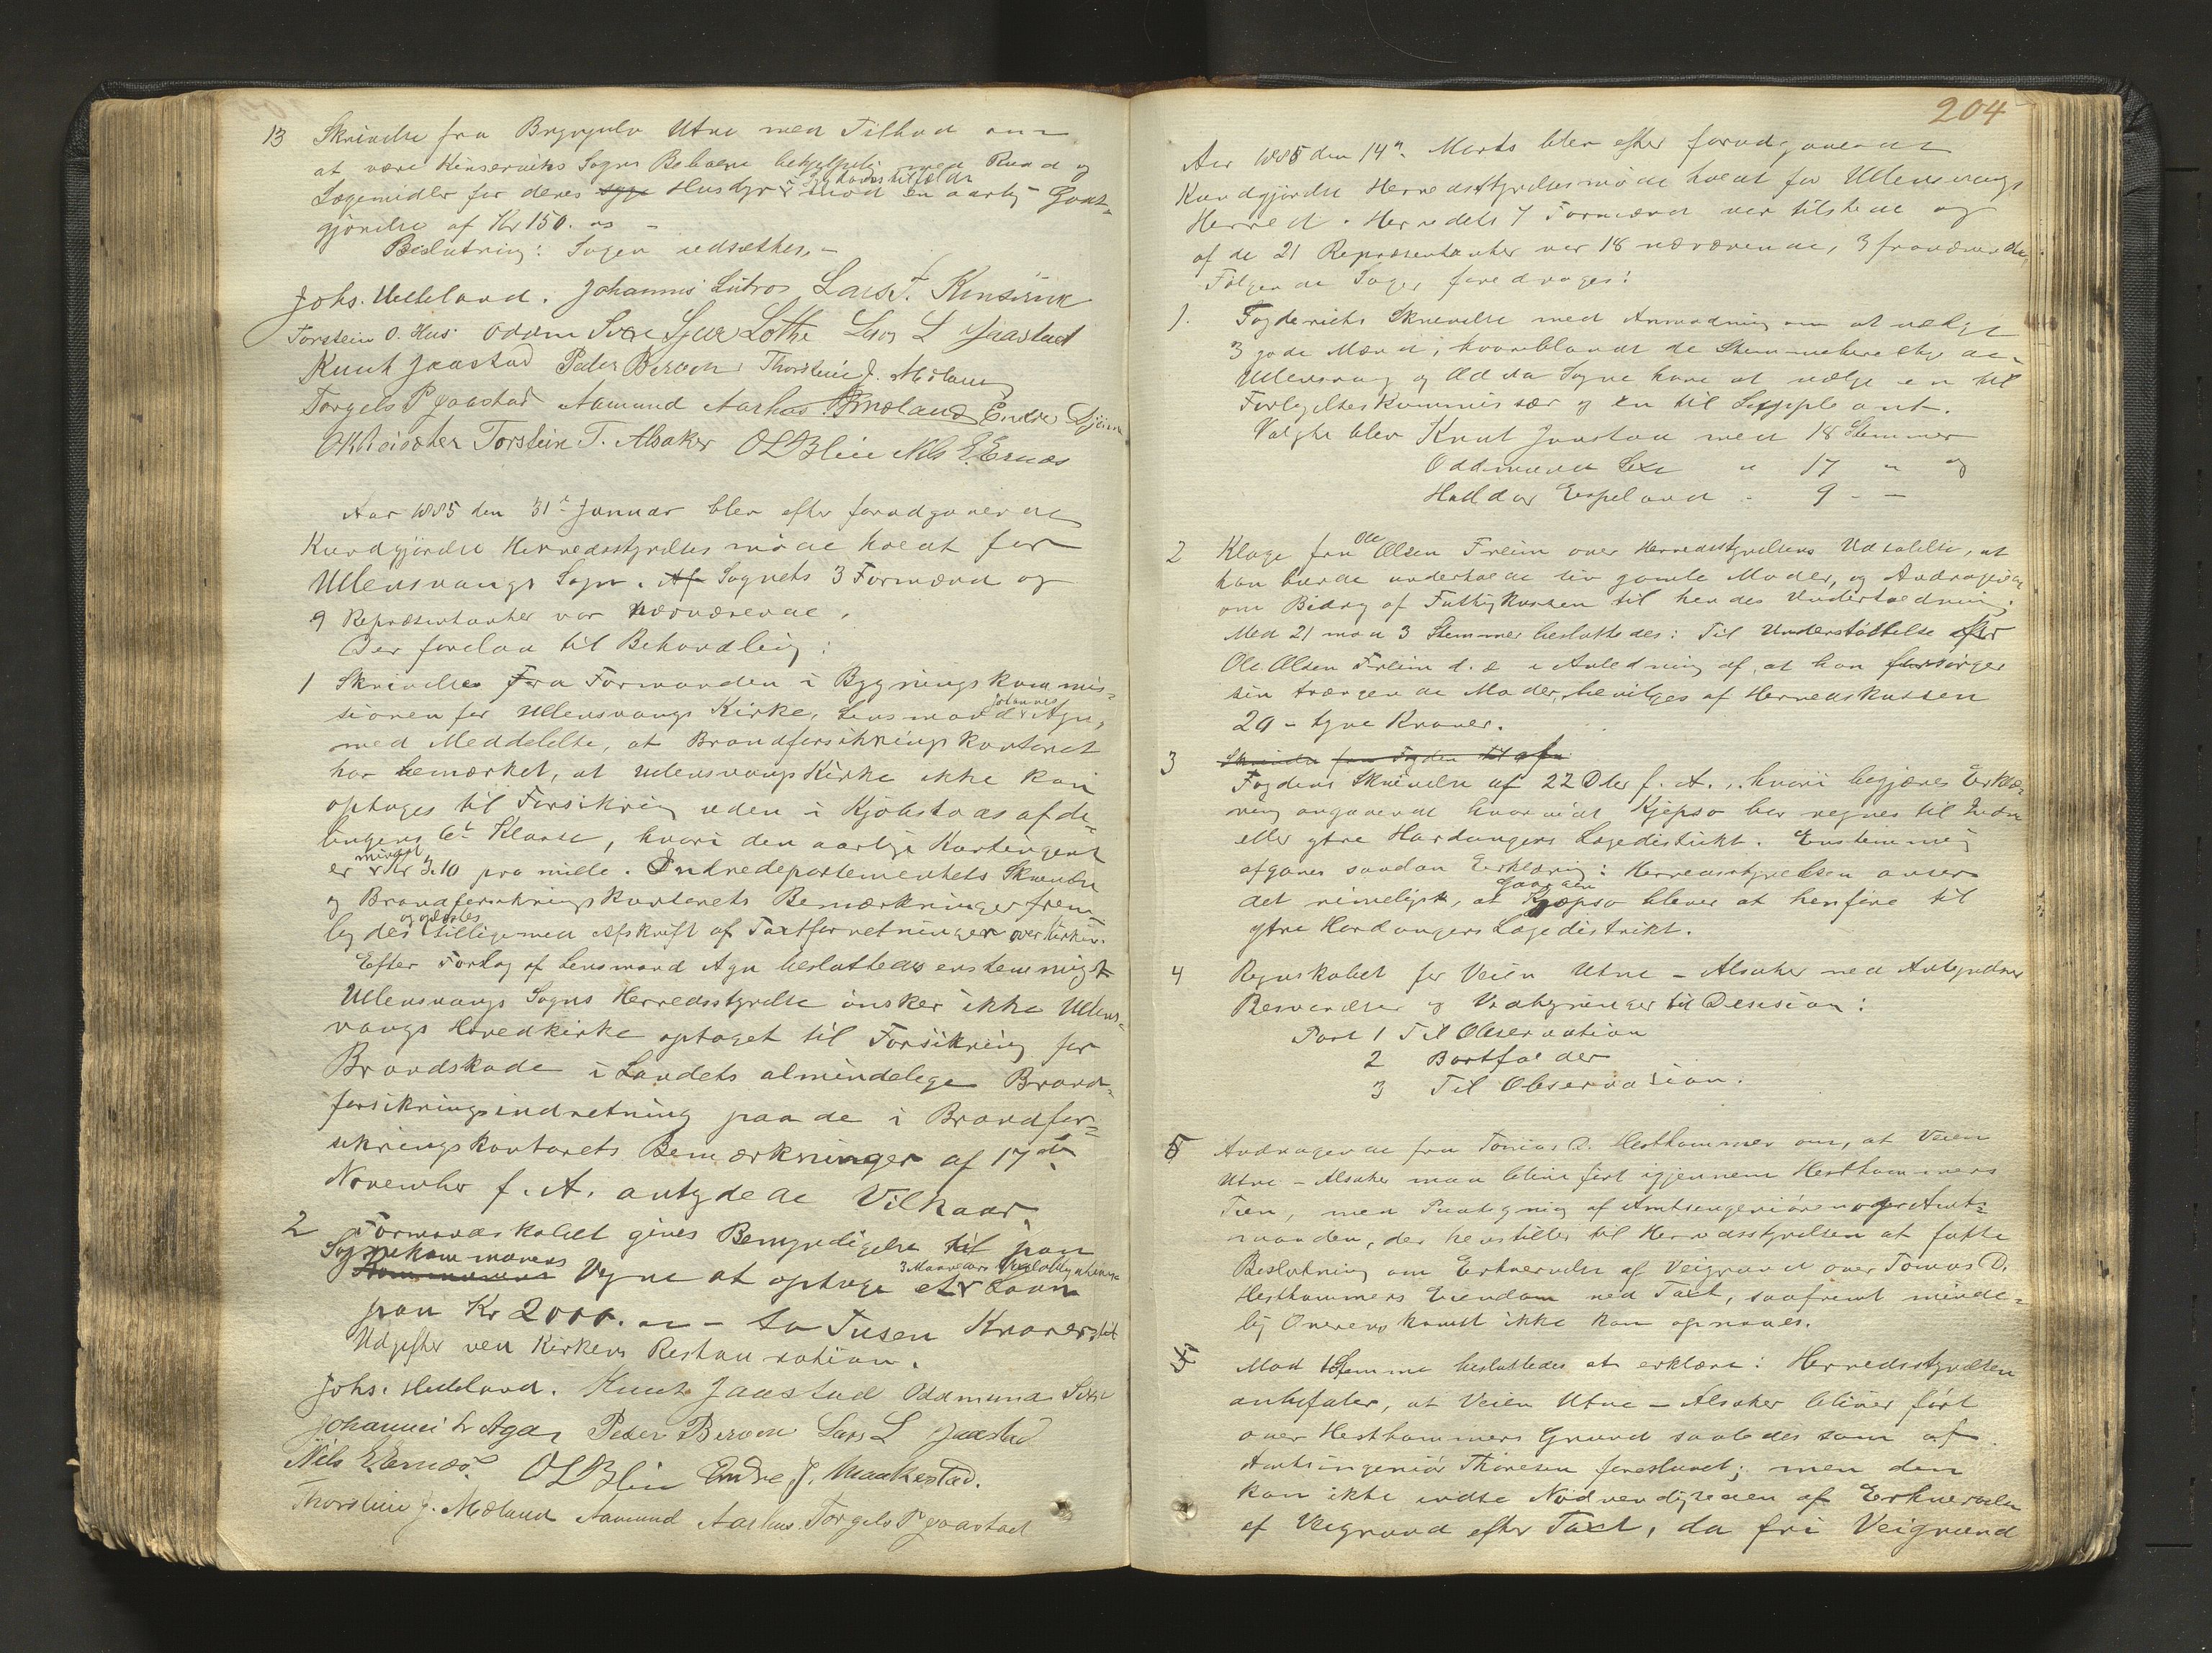 13 Skrivelse fra Brynjulv Utne med Tilbud om
at være Kinserviks Sogns Beboere behjelpelig med Raad og
Lægemidler for deres syge Husdyr i Sygdomstilfælde mod en aarlig Godt-
gjörelse af Kr 150.
Beslutning: Sagen udsættes.
Johs. Helleland. Johannes Lutro Lars T. Kinservik
Torstein O. Hus. Oddm Sexe Sjur Lothe Lars L Jaastad
Knut Jaastad Peder Berven Thorstein J. Mæland
Torgels P Jaastad Aamund Aarhus Endre Djönne
Torstein T. Alsaker O L Blie Nils E. Ernæs
Aar 1885 den 31te Januar blev efter forudgaaende
Kundgjörelse Herredsstyrelsesmöde holdt for
Ullensvangs Sogn. Af Sognets 3 Formænd og
9 Repræsentanter var nærværende.
Der forelaa til Behandling:
1 Skrivelse fra Formanden i Bygningskommis-
sionen for Ullensvangs Kirke, Lensmand Johannes Aga,
med Meddelelse, at Brandforsikringskontoret
har bemærket, at Ullensvangs Kirke ikke kan
optages til Forsikring uden i Kjöbstadsafde-
lingens 6te Klasse, hvori den aarlige Kontingent
er mindst Kr 3.10 pro mille. Indredepartementets Skrivelse
og Brandforsikringskontorets Bemærkninger frem-
lagdes og oplæstes tilligemed Afskrift af Taxtforretningen over Kirken.
Efter Forslag af Lensmand Aga besluttedes enstemmigt
Ullensvangs Sogns Herredsstyrelse önsker ikke Ullens-
vangs Hovedkirke optaget til Forsikring for
Brandskade i Landets almindelige Brand-
forsikringsindretning paa de i Brandfor-
sikringskontorets Bemærkninger af 17de
November f. A. antydede Vilkaar.
2 Formandskabet gives Bemyndigelse til paa
Sognekommunens
Kommunens Vegne at optage et 3 Maaneders Vexelobligations Laan
paa Kr 2000. - to Tusen Kroner til
Udgifter ved Kirkens Restauration.
Johs. Helleland. Knut Jaastad Oddmund Sexe
Johannes L Aga Peder Berven Lars L Jaastad
Nils E. Ernæs. O L Blie Endre J. Maakestad.
Thorstein J. Mæland Aamund Aarhus. Torgels P Jaastad
204
Aar 1885 den 14de Marts blev efter forudgaaende
Kundgjörelse Herredsstyrelsesmöde holdt for Ullensvangs
Herred. Herredets 7 Formænd var tilstede og
af de 21 Repræsentanter var 18 nærværende, 3 fraværende.
Fölgende Sager foredroges:
1. Fogderiets Skrivelse med Anmodning om at vælge
3 gode Mænd, hvoriblandt de Stemmeberettigede i
Ullensvang og Odda Sogne have at vælge en til
Forligelseskommissær og en til Suppleant.
Valgte blev Knut Jaastad med 18 Stemmer
Oddmund Sexe " 17 " og
Halldor Espeland - 9 - -
2 Klage fra Ole Olsen Freim over Herredsstyrelsens Udtalelse, at
han burde underholde sin gamle Moder, og Andragende
om Bidrag af Fattigkassen til hendes Underholdning.
Med 21 mod 3 Stemmer besluttedes: Til Understöttelse for
Ole Olsen Freim d. æ i Anledning af, at han forsörger
sin trængende Moder, bevilges af Herredskassen
20 - tyve Kroner.
3 Skrivelse fra Fogden til
Fogdens Skrivelse af 22 Dbr f. A., hvori begjæres Erklæ-
ring angaaende hvorvidt Kjepsø bør regnes til Indre
eller ytre Hardangers Lægedistrikt. Enstemmig
afgaves saadan Erklæring: Herredsstyrelsen anser
det rimeligst, at Gaarden Kjæpsø bliver at henföre til
ytre Hardangers Lægedistrikt.
4 Regnskabet for Veien Utne - Alsaker med Antegnelser
Besvarelser og til Desision:
Post 1 Til Observation
2 Bortfalder
3 Til Observasion.
5 Andragende fra Tomas D. Hesthammer om, at Veien
Utne - Alsaker maa blive fört igjennem Hesthammers
Tun, med Paategning af Amtsingeniören og Amt-
manden, der henstiller til Herredsstyrelsen at fatte
Beslutning om Erhvervelse af Veigrund over Tomas D.
Hesthammers Eiendom ved Taxt, saafremt minde-
lig Overenskomst ikke kan opnaaes.
Mod 1 Stemme besluttedes at erklære: Herredsstyrelsen
anbefaler, at Veien Utne - Alsaker bliver fört
over Hesthammers Grund saaledes som af
Amtsingeniör Thoresen foreslaaet; men den
kan ikke indse Nödvendigheden af Erhvervelse
af Veigrund efter Taxt, da fri Veigrund